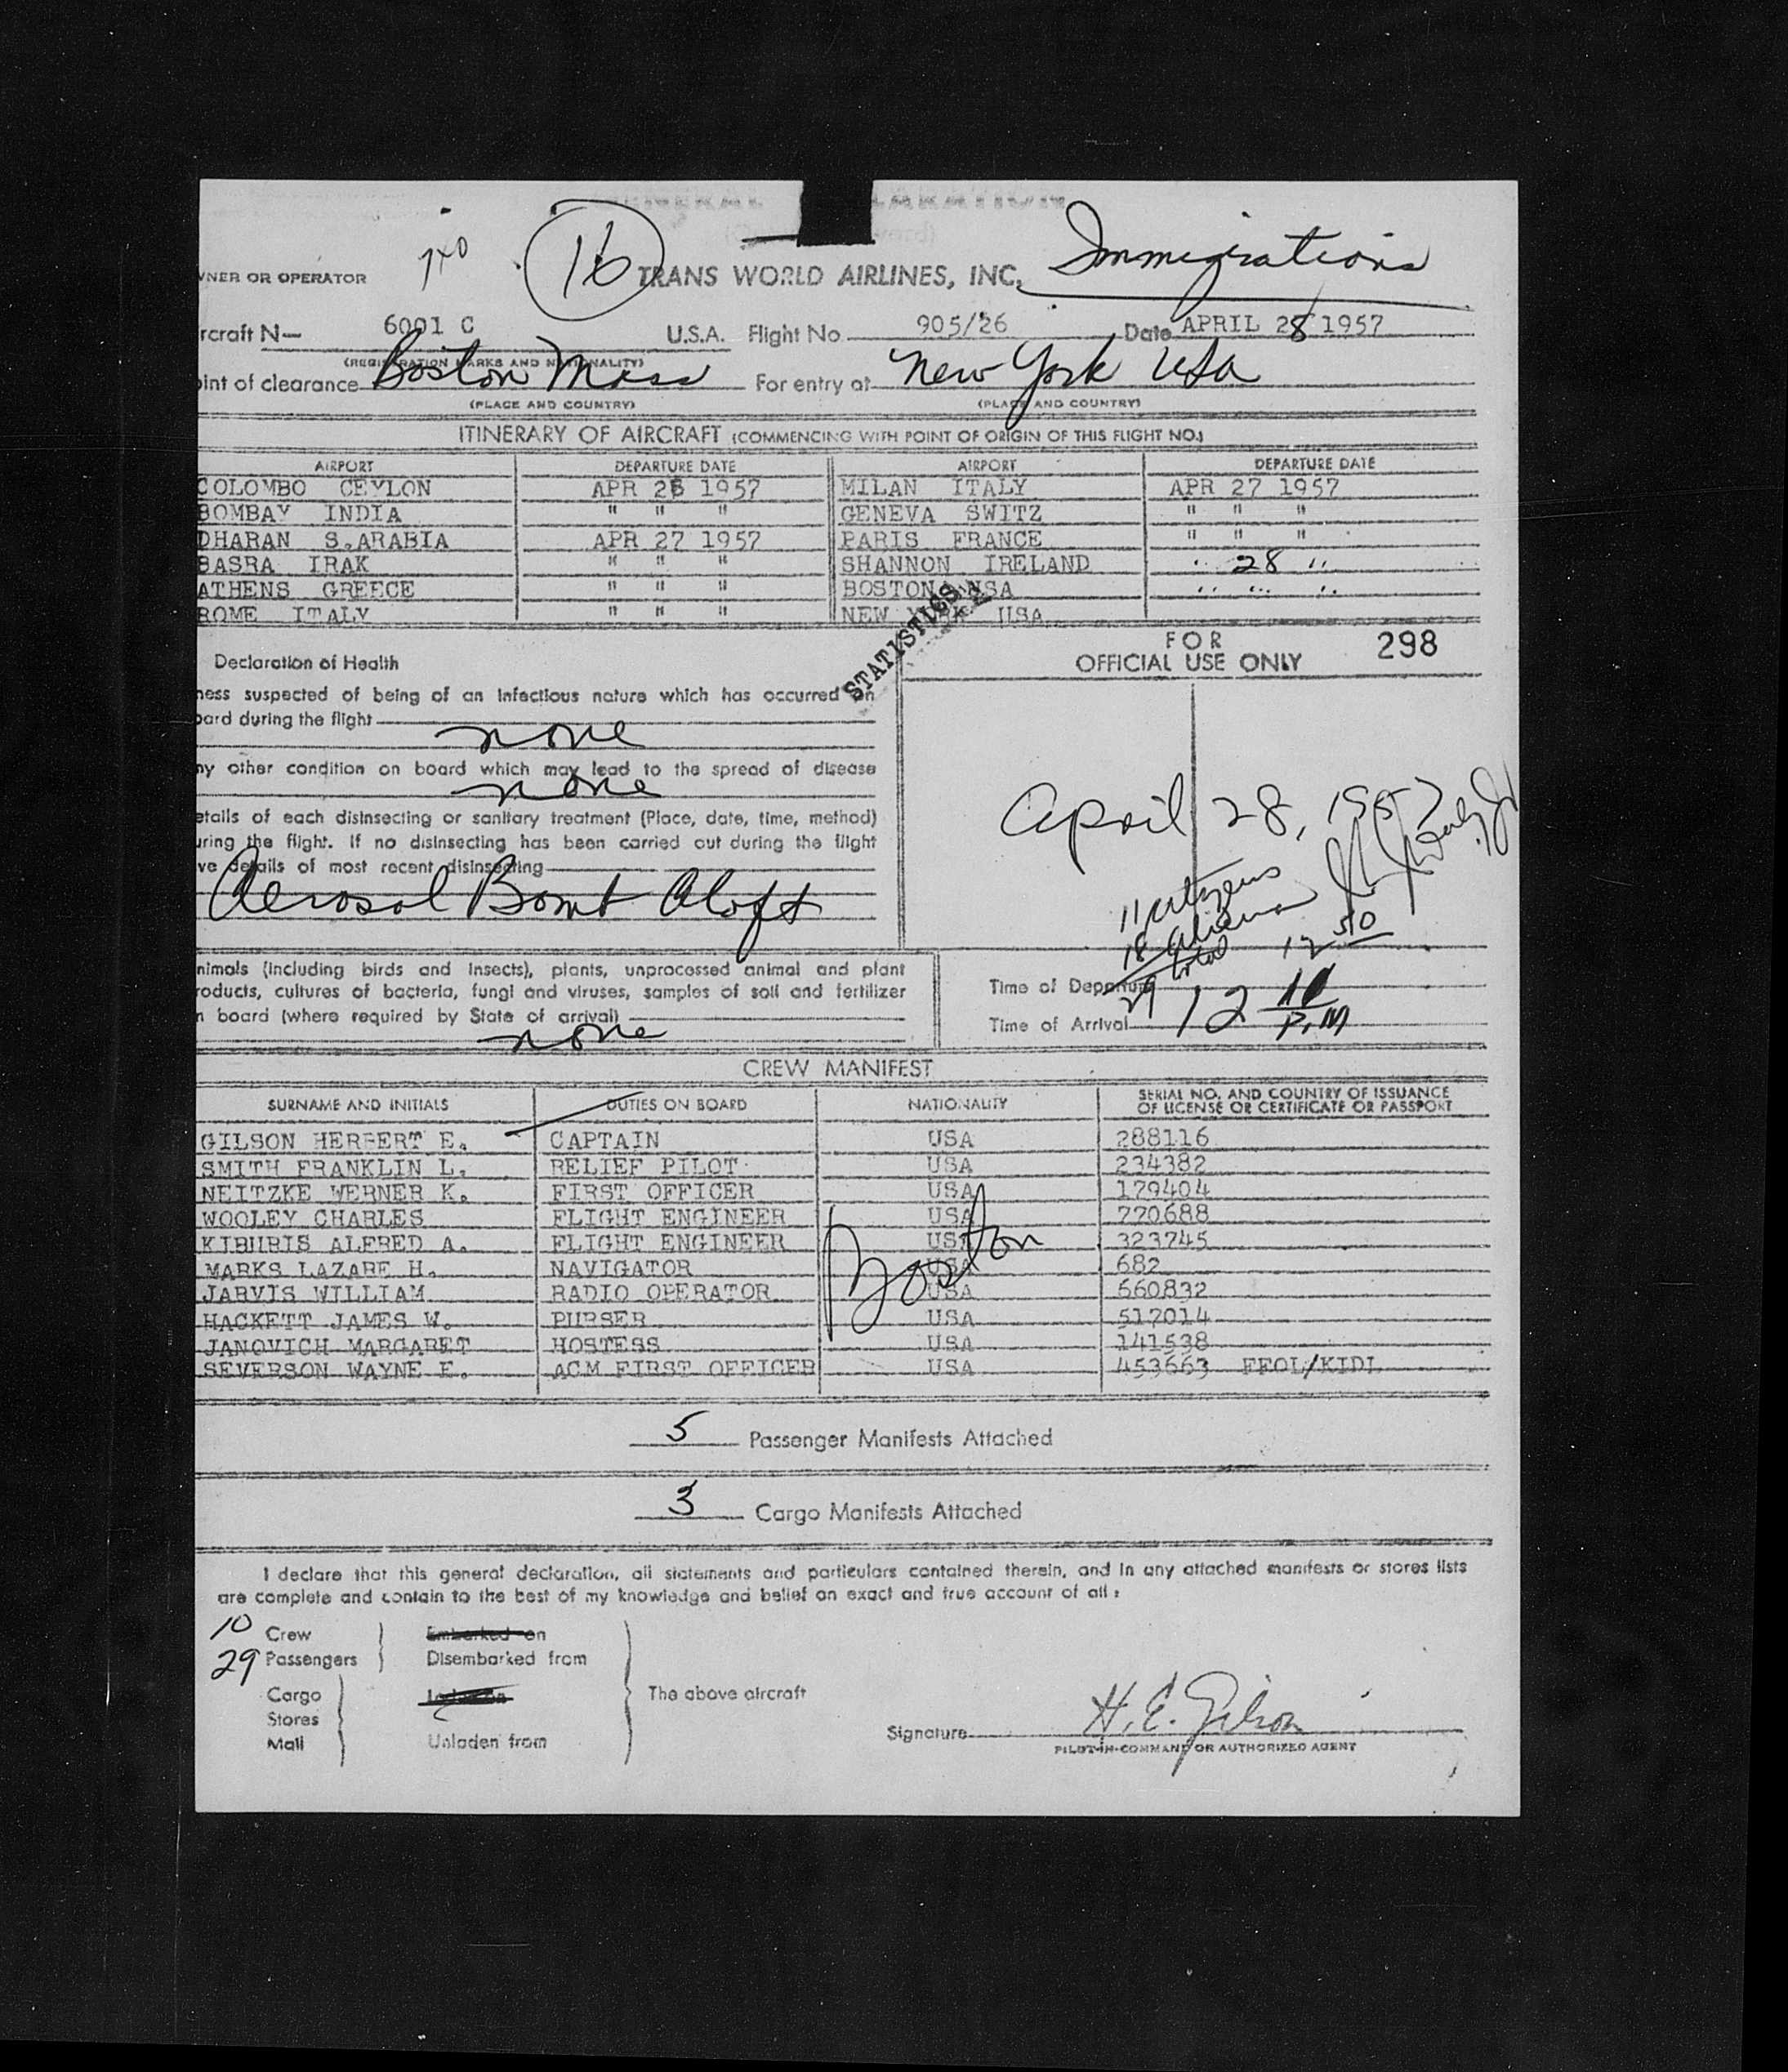 16
Immigrations
WNER OR OPERATOR TRANS WORLD AIRLINES, INC.
rcraft N— 6001 C U.S.A. Flight No. 905/26 Date APRIL 28 1957
(REGISTRATION MARKS AND NATIONALITY)
oint of clearance Boston Mass For entry at New York USA
(PLACE AND COUNTRY) (PLACE AND COUNTRY)
ITINERARY OF AIRCRAFT (COMMENCING WITH POINT OF ORIGIN OF THIS FLIGHT NO.)
AIRPORT DEPARTURE DATE AIRPORT DEPARTURE DATE
COLOMBO CEYLON APR 26 1957 MILAN ITALY APR 27 1957
BOMBAY INDIA " " " GENEVA SWITZ " " "
DHARAN S.ARABIA APR 27 1957 PARIS FRANCE " " "
BASRA IRAK " " " SHANNON IRELAND " 28 "
ATHENS GREECE " " " BOSTON USA " " "
ROME ITALY " " " NEW YORK USA
STATISTICS
FOR
OFFICIAL USE ONLY 298
Declaration of Health
ness suspected of being of an infectious nature which has occurred on
oard during the flight
none
ny other condition on board which may lead to the spread of disease
none
etails of each disinsecting or sanitary treatment (Place, date, time, method)
uring the flight. If no disinsecting has been carried out during the flight
ve details of most recent disinsecting
Aerosol Bomb Aloft
April 28, 1957
11 citizens
18 aliens
29 total
nimals (including birds and insects), plants, unprocessed animal and plant
roducts, cultures of bacteria, fungi and viruses, samples of soil and fertilizer
n board (where required by State of arrival)
none
Time of Departure 12 50
Time of Arrival 12 10 P.M
CREW MANIFEST
SURNAME AND INITIALS DUTIES ON BOARD NATIONALITY SERIAL NO. AND COUNTRY OF ISSUANCE
OF LICENSE OR CERTIFICATE OR PASSPORT
GILSON HERBERT E. CAPTAIN USA 288116
SMITH FRANKLIN L. RELIEF PILOT USA 234382
NEITZKE WERNER K. FIRST OFFICER USA 179404
WOOLEY CHARLES FLIGHT ENGINEER USA 770688
KIBURIS ALFRED A. FLIGHT ENGINEER USA 323745
MARKS LAZARE H. NAVIGATOR USA 682
JARVIS WILLIAM RADIO OPERATOR USA 660832
HACKETT JAMES W. PURSER USA 517014
JANOVICH MARGARET HOSTESS USA 141538
SEVERSON WAYNE E. ACM FIRST OFFICER USA 453663 FFOL/KIDL
Boston
5 Passenger Manifests Attached
3 Cargo Manifests Attached
I declare that this general declaration, all statements and particulars contained therein, and in any attached manifests or stores lists
are complete and contain to the best of my knowledge and belief an exact and true account of all :
10 Crew Embarked on
29 Passengers Disembarked from
Cargo The above aircraft
Stores
Mail Unladen from
Signature H. E. Gilson
PILOT-IN-COMMAND OR AUTHORIZED AGENT